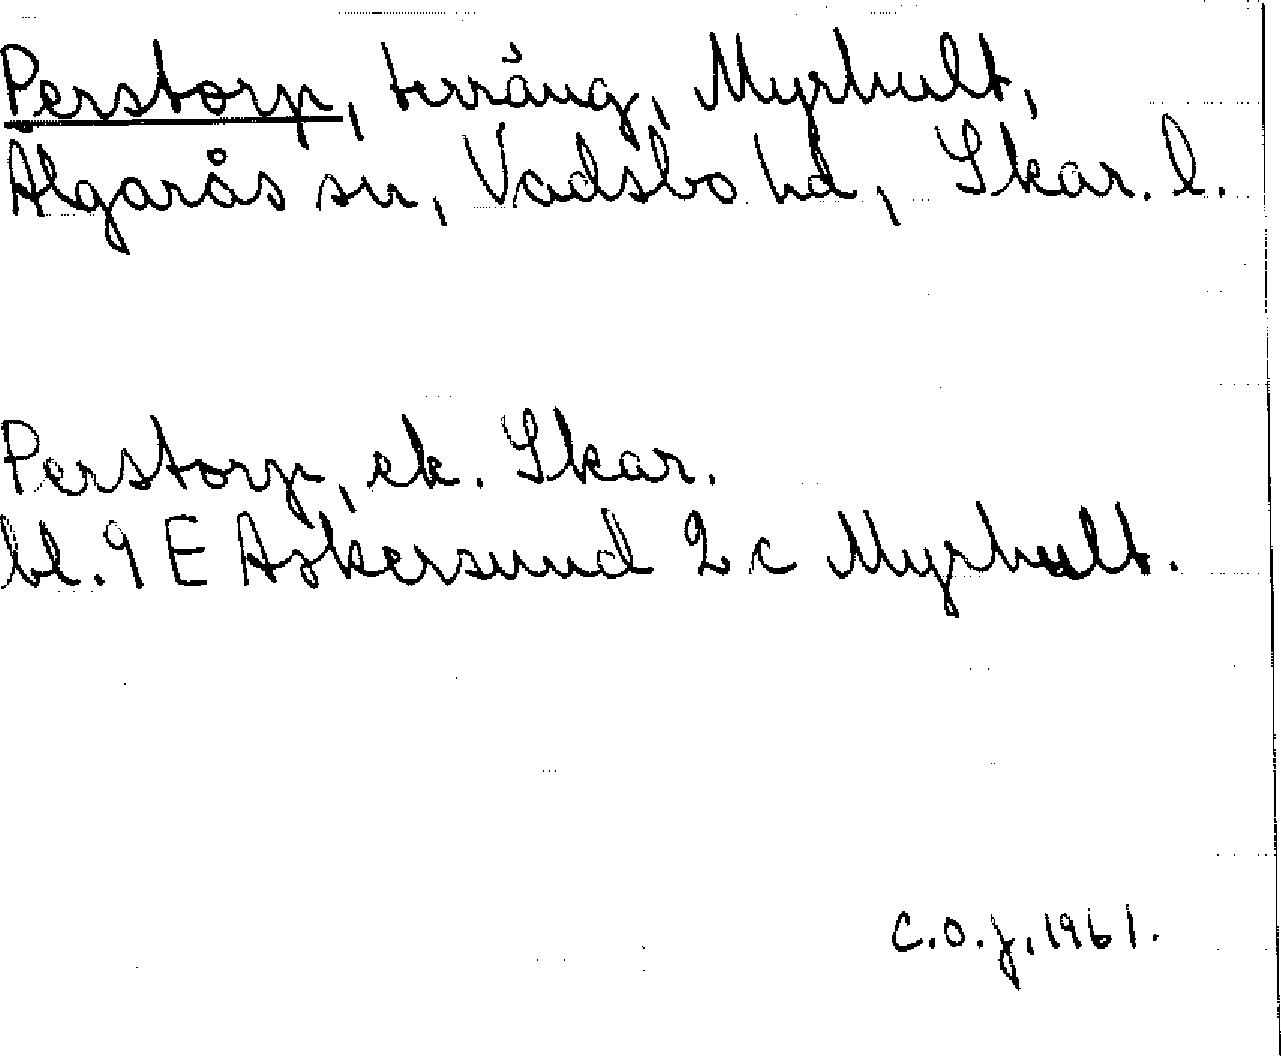 Perstorp, terräng, Myrhult,
Älgarås sn, Vadsbo hd, Skar. l.
Perstorp, ek. Skar.
bl. 9 E Askersund 2 c Myrhult.
C.O.J. 1961.